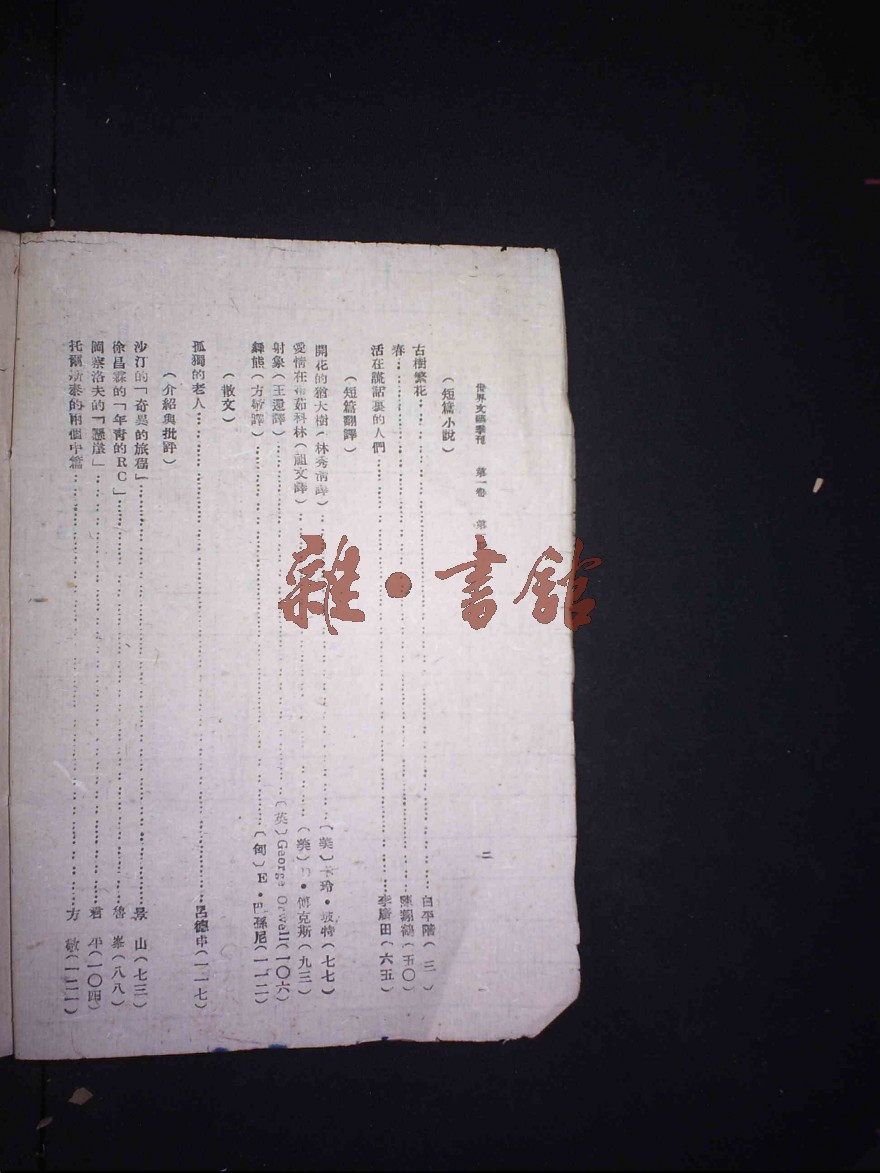 世界文藝季刊 第一卷 第
二
(短篇小說)
古樹繁花……白平階(三)
春……陳翔鶴(五〇)
活在謊話裏的人們……李廣田(六五)
(短篇翻譯)
開花的猶大樹(林秀清譯)……(美)卡玲・波特(七七)
愛情在茄科林(祖文譯)……(美)・傅克斯(九三)
射象(王還譯)……(英)George Orwell(一〇六)
熊(方敬譯)……(匈)E・巴孫尼(一一二)
(散文)
孤獨的老人……呂德申(一一七)
(介紹與批評)
沙汀的「奇異的旅程」……景 山(七三)
徐昌霖的「年青的RC」……魯 峯(八八)
岡察洛夫的「懸崖」……君 平(一〇四)
托爾斯泰的兩個中篇……方 敬(一二一)
雜・書館